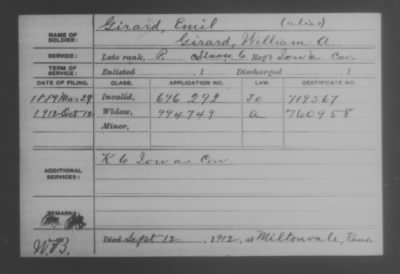 NAME OF SOLDIER: Girard, Emil (alias)
Girard, William A
SERVICE: Late rank, P. Regt Iowa Cav.
TERM OF SERVICE: Enlisted , 1 Discharged , 1
DATE OF FILING. CLASS. APPLICATION NO. LAW. CERTIFICATE NO.
1889 Mar 29 Invalid, 696 292 Jo 719567
1912 Oct 12 Widow, 994.749 a 760958
Minor,
ADDITIONAL SERVICES: K 6 Iowa Cav
REMARKS:
W.B. Died Sept 12, 1912, at Miltonvale, Kans